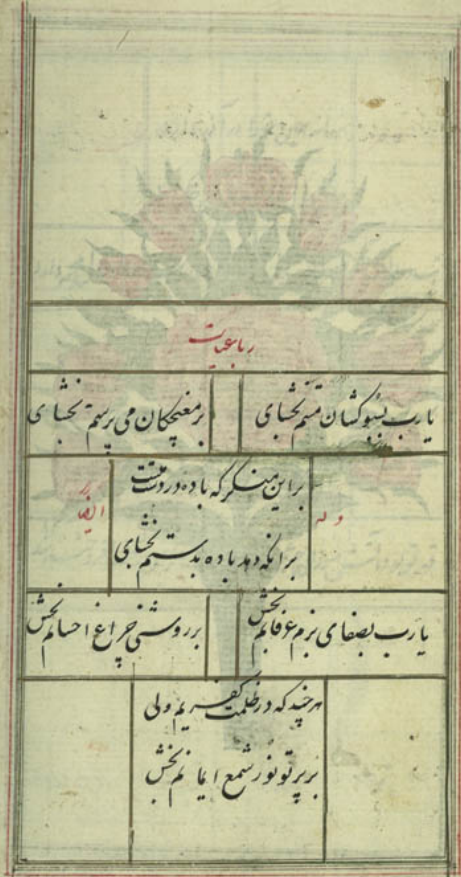 رباعیات
یارب بسبوکشان مستم بخشای    بر مغبچکان می پرستم بخشای
بر این منگر که باده در دست منست
برانکه دهد باده بدستم بخشای
وله ایضا
یارب بصفای بزم عرفانم بخش    بر روشنی چراغ احسانم بخش
هرچند که در ظلمت کفریم ولی
بر پرتو نور شمع ایمانم بخش